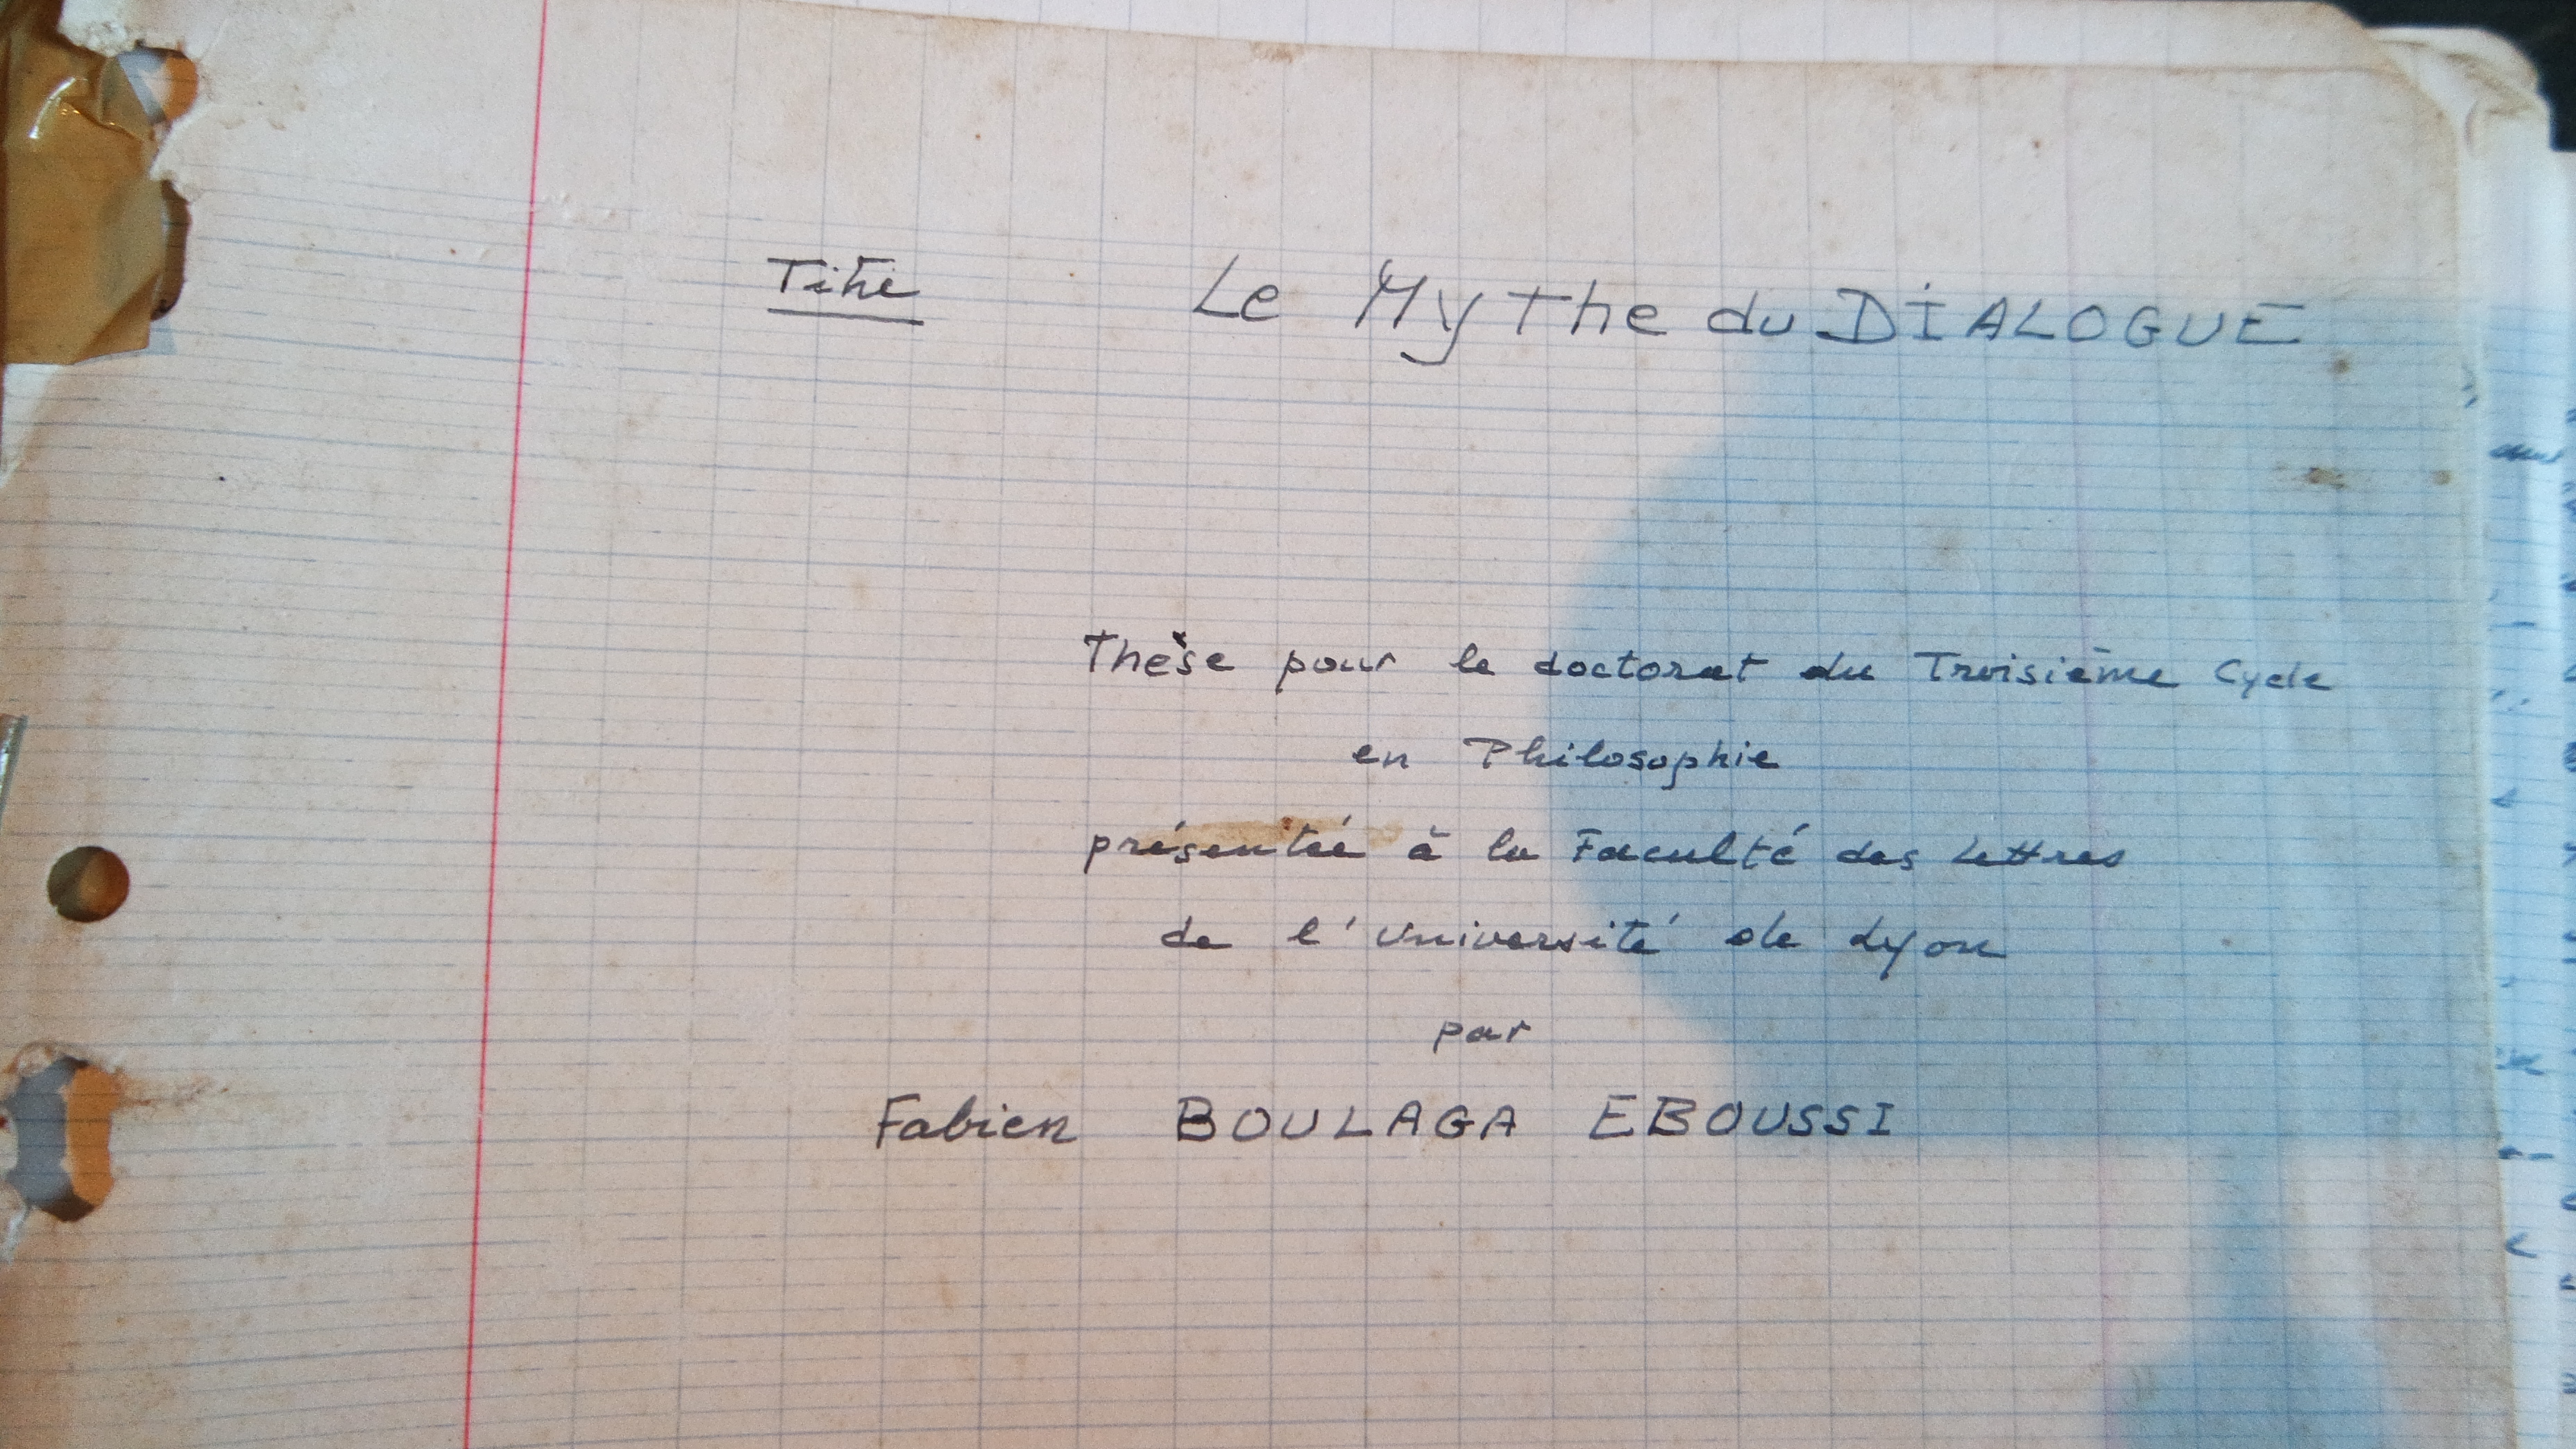 Titre Le Mythe du DIALOGUE
Thèse pour le doctorat du Troisième Cycle
en Philosophie
présentée à la Faculté des Lettres
de l'Université de Lyon
par
Fabien BOULAGA EBOUSSI